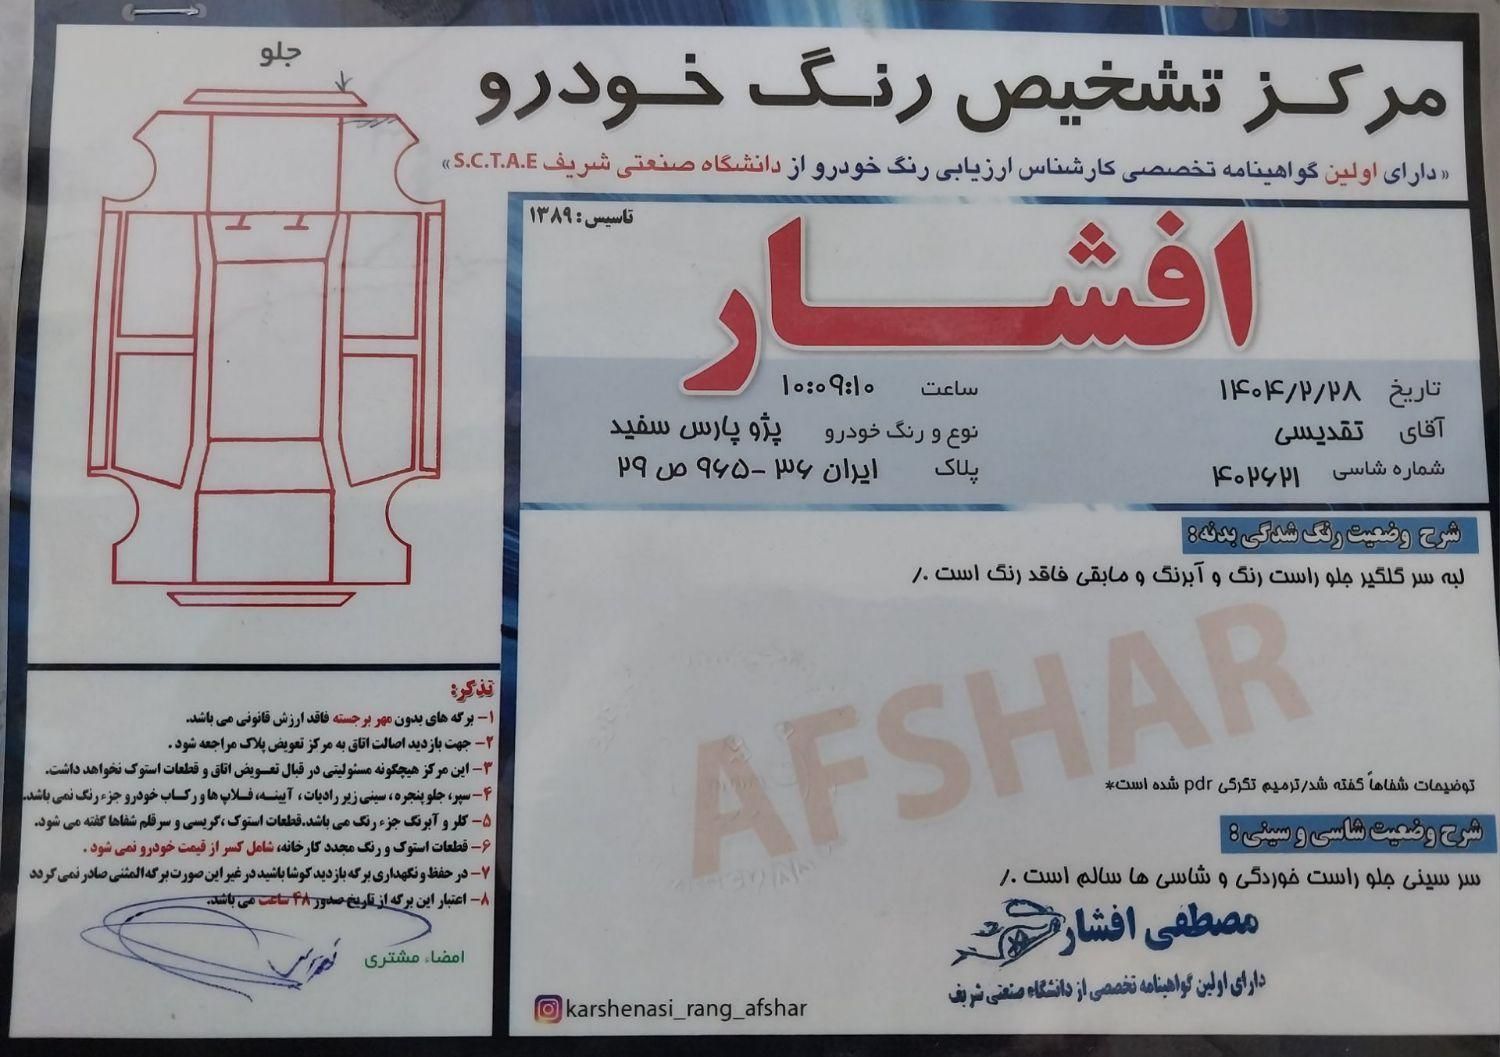 جلو
مرکز تشخیص رنگ خودرو
«دارای اولین گواهینامه تخصصی کارشناس ارزیابی رنگ خودرو از دانشگاه صنعتی شریف S.C.T.A.E»
تاسیس: ۱۳۸۹
افشار
تاریخ ۱۴۰۴/۲/۲۸ ساعت ۱۰:۰۹:۱۰
آقای تقدیسی نوع و رنگ خودرو پژو پارس سفید
شماره شاسی ۴۰۲۶۲۱ پلاک ایران ۳۶ -۹۶۵ ص ۲۹
شرح وضعیت رنگ شدگی بدنه:
لبه سر گلگیر جلو راست رنگ و آبرنگ و مابقی فاقد رنگ است ./
AFSHAR
توضیحات شفاهاً گفته شد/ترمیم تگرگی pdr شده است*
شرح وضعیت شاسی و سینی:
سر سینی جلو راست خوردگی و شاسی ها سالم است ./
مصطفی افشار
دارای اولین گواهینامه تخصصی از دانشگاه صنعتی شریف
karshenasi_rang_afshar
تذکر:
۱- برگه های بدون مهر برجسته فاقد ارزش قانونی می باشد.
۲- جهت بازدید اصالت اتاق به مرکز تعویض پلاک مراجعه شود .
۳- این مرکز هیچگونه مسئولیتی در قبال تعویض اتاق و قطعات استوک نخواهد داشت.
۴- سپر، جلو پنجره، سینی زیر رادیات، آیینه، فلاپ ها و رکاب خودرو جزء رنگ نمی باشد.
۵- کلر و آبرنگ جزء رنگ می باشد.قطعات استوک ،گریسی و سرقلم شفاها گفته می شود.
۶- قطعات استوک و رنگ مجدد کارخانه، شامل کسر از قیمت خودرو نمی شود .
۷- در حفظ و نگهداری برگه بازدید کوشا باشید در غیر این صورت برگه المثنی صادر نمی گردد
۸- اعتبار این برگه از تاریخ صدور ۴۸ ساعت می باشد.
امضاء مشتری